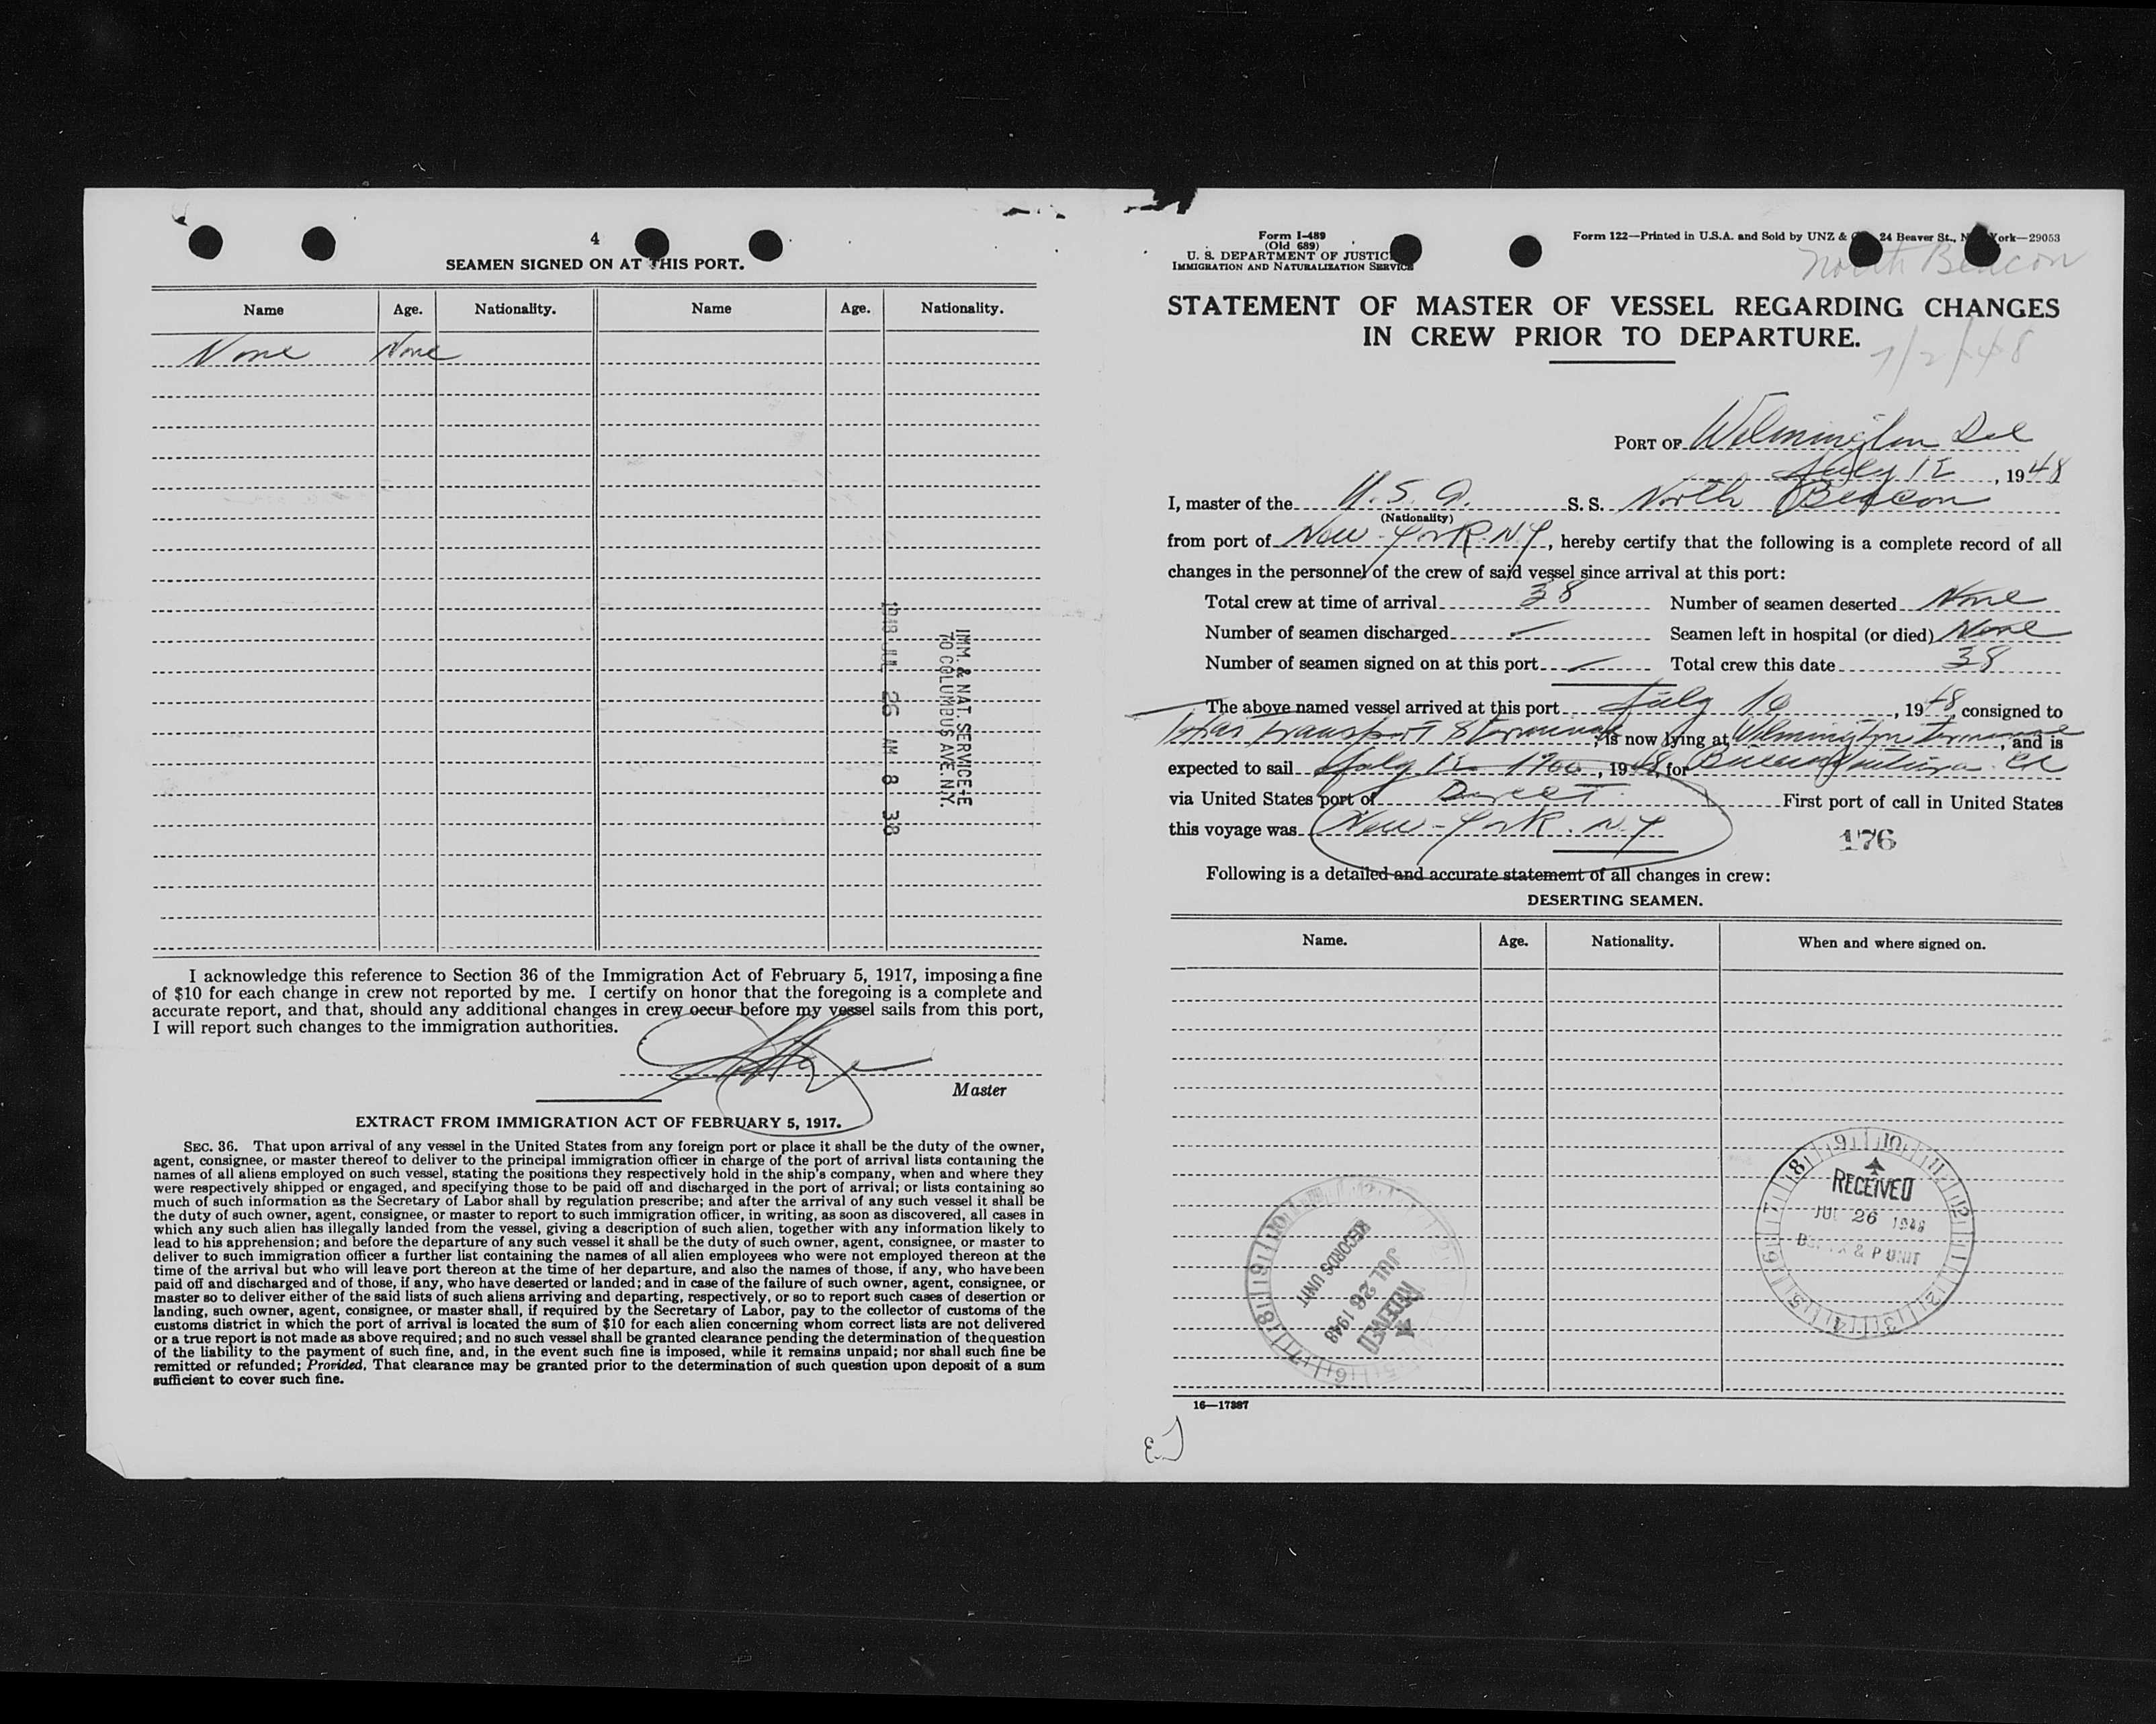 4
SEAMEN SIGNED ON AT THIS PORT.
Name Age. Nationality. Name Age. Nationality.
None None
IMM. & NAT. SERVICE-E
70 COLUMBUS AVE. N.Y.
1948 JUL 26 AM 8 38
I acknowledge this reference to Section 36 of the Immigration Act of February 5, 1917, imposing a fine
of $10 for each change in crew not reported by me. I certify on honor that the foregoing is a complete and
accurate report, and that, should any additional changes in crew occur before my vessel sails from this port,
I will report such changes to the immigration authorities.
Master
EXTRACT FROM IMMIGRATION ACT OF FEBRUARY 5, 1917.
SEC. 36. That upon arrival of any vessel in the United States from any foreign port or place it shall be the duty of the owner,
agent, consignee, or master thereof to deliver to the principal immigration officer in charge of the port of arrival lists containing the
names of all aliens employed on such vessel, stating the positions they respectively hold in the ship's company, when and where they
were respectively shipped or engaged, and specifying those to be paid off and discharged in the port of arrival; or lists containing so
much of such information as the Secretary of Labor shall by regulation prescribe; and after the arrival of any such vessel it shall be
the duty of such owner, agent, consignee, or master to report to such immigration officer, in writing, as soon as discovered, all cases in
which any such alien has illegally landed from the vessel, giving a description of such alien, together with any information likely to
lead to his apprehension; and before the departure of any such vessel it shall be the duty of such owner, agent, consignee, or master to
deliver to such immigration officer a further list containing the names of all alien employees who were not employed thereon at the
time of the arrival but who will leave port thereon at the time of her departure, and also the names of those, if any, who have been
paid off and discharged and of those, if any, who have deserted or landed; and in case of the failure of such owner, agent, consignee, or
master so to deliver either of the said lists of such aliens arriving and departing, respectively, or so to report such cases of desertion or
landing, such owner, agent, consignee, or master shall, if required by the Secretary of Labor, pay to the collector of customs of the
customs district in which the port of arrival is located the sum of $10 for each alien concerning whom correct lists are not delivered
or a true report is not made as above required; and no such vessel shall be granted clearance pending the determination of the question
of the liability to the payment of such fine, and, in the event such fine is imposed, while it remains unpaid; nor shall such fine be
remitted or refunded; Provided, That clearance may be granted prior to the determination of such question upon deposit of a sum
sufficient to cover such fine.
Form I-489
(Old 689)
U. S. DEPARTMENT OF JUSTICE
IMMIGRATION AND NATURALIZATION SERVICE
Form 122—Printed in U.S.A. and Sold by UNZ & 24 Beaver St., New York—29053
North Beacon
STATEMENT OF MASTER OF VESSEL REGARDING CHANGES
IN CREW PRIOR TO DEPARTURE.
7/2/48
PORT OF Wilmington Del
July 12, 1948
I, master of the U. S. A. S. S. North Beacon
(Nationality)
from port of New-York. N.Y., hereby certify that the following is a complete record of all
changes in the personnel of the crew of said vessel since arrival at this port:
Total crew at time of arrival 38 Number of seamen deserted None
Number of seamen discharged — Seamen left in hospital (or died) None
Number of seamen signed on at this port — Total crew this date 38
The above named vessel arrived at this port July 10, 1948, consigned to
Transport & Terminal, is now lying at Wilmington Terminal, and is
expected to sail July 12 1700, 1948, for Buenaventura
via United States port of Direct First port of call in United States
this voyage was New-York. N.Y
176
Following is a detailed and accurate statement of all changes in crew:
DESERTING SEAMEN.
Name. Age. Nationality. When and where signed on.
RECEIVED
JUL 26 1948
& P UNIT
RECORDS UNIT
JUL 26 1948
RECEIVED
16—17387